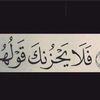 فَلَا يَحْزُنكَ قَوْلُهُمْ